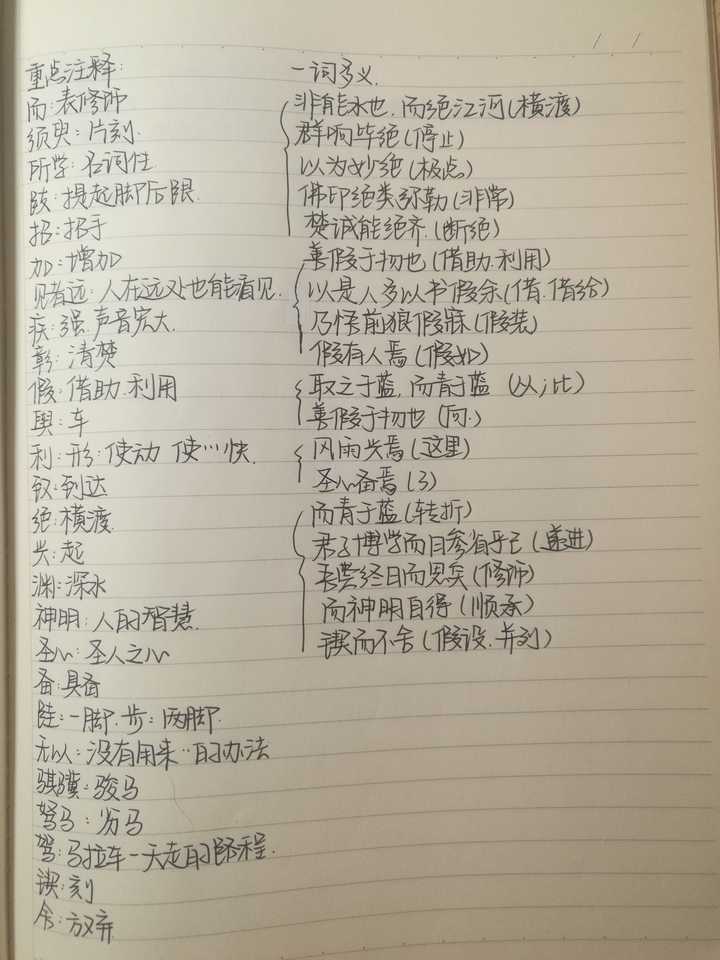 重点注释:
而:表修饰
须臾:片刻.
所学:名词性
跂:提起脚后跟.
招:招手
加:增加
见者远:人在远处也能看见.
疾:强.声音宏大.
彰:清楚
假:借助.利用
舆:车
利:形:使动 使…快.
致:到达
绝:横渡.
兴:起
渊:深水
神明:人的智慧.
圣心:圣人之心
备:具备
跬:一脚.步:两脚.
无以:没有用来…的办法
骐骥:骏马
驽马:劣马
驾:马拉车一天走的路程.
锲:刻
舍:放弃
一词多义.
非能水也,而绝江河(横渡)
群响毕绝(停止)
以为妙绝(极点)
佛印绝类弥勒(非常)
楚诚能绝齐(断绝)
善假于物也(借助.利用)
以是人多以书假余(借.借给)
乃悟前狼假寐(假装)
假有人焉(假如)
取之于蓝,而青于蓝 (从;比)
善假于物也(向.)
风雨兴焉(这里)
圣心备焉(了)
而青于蓝(转折)
君子博学而日参省乎己(递进)
吾尝终日而思矣(修饰)
而神明自得(顺承)
锲而不舍(假设.并列)